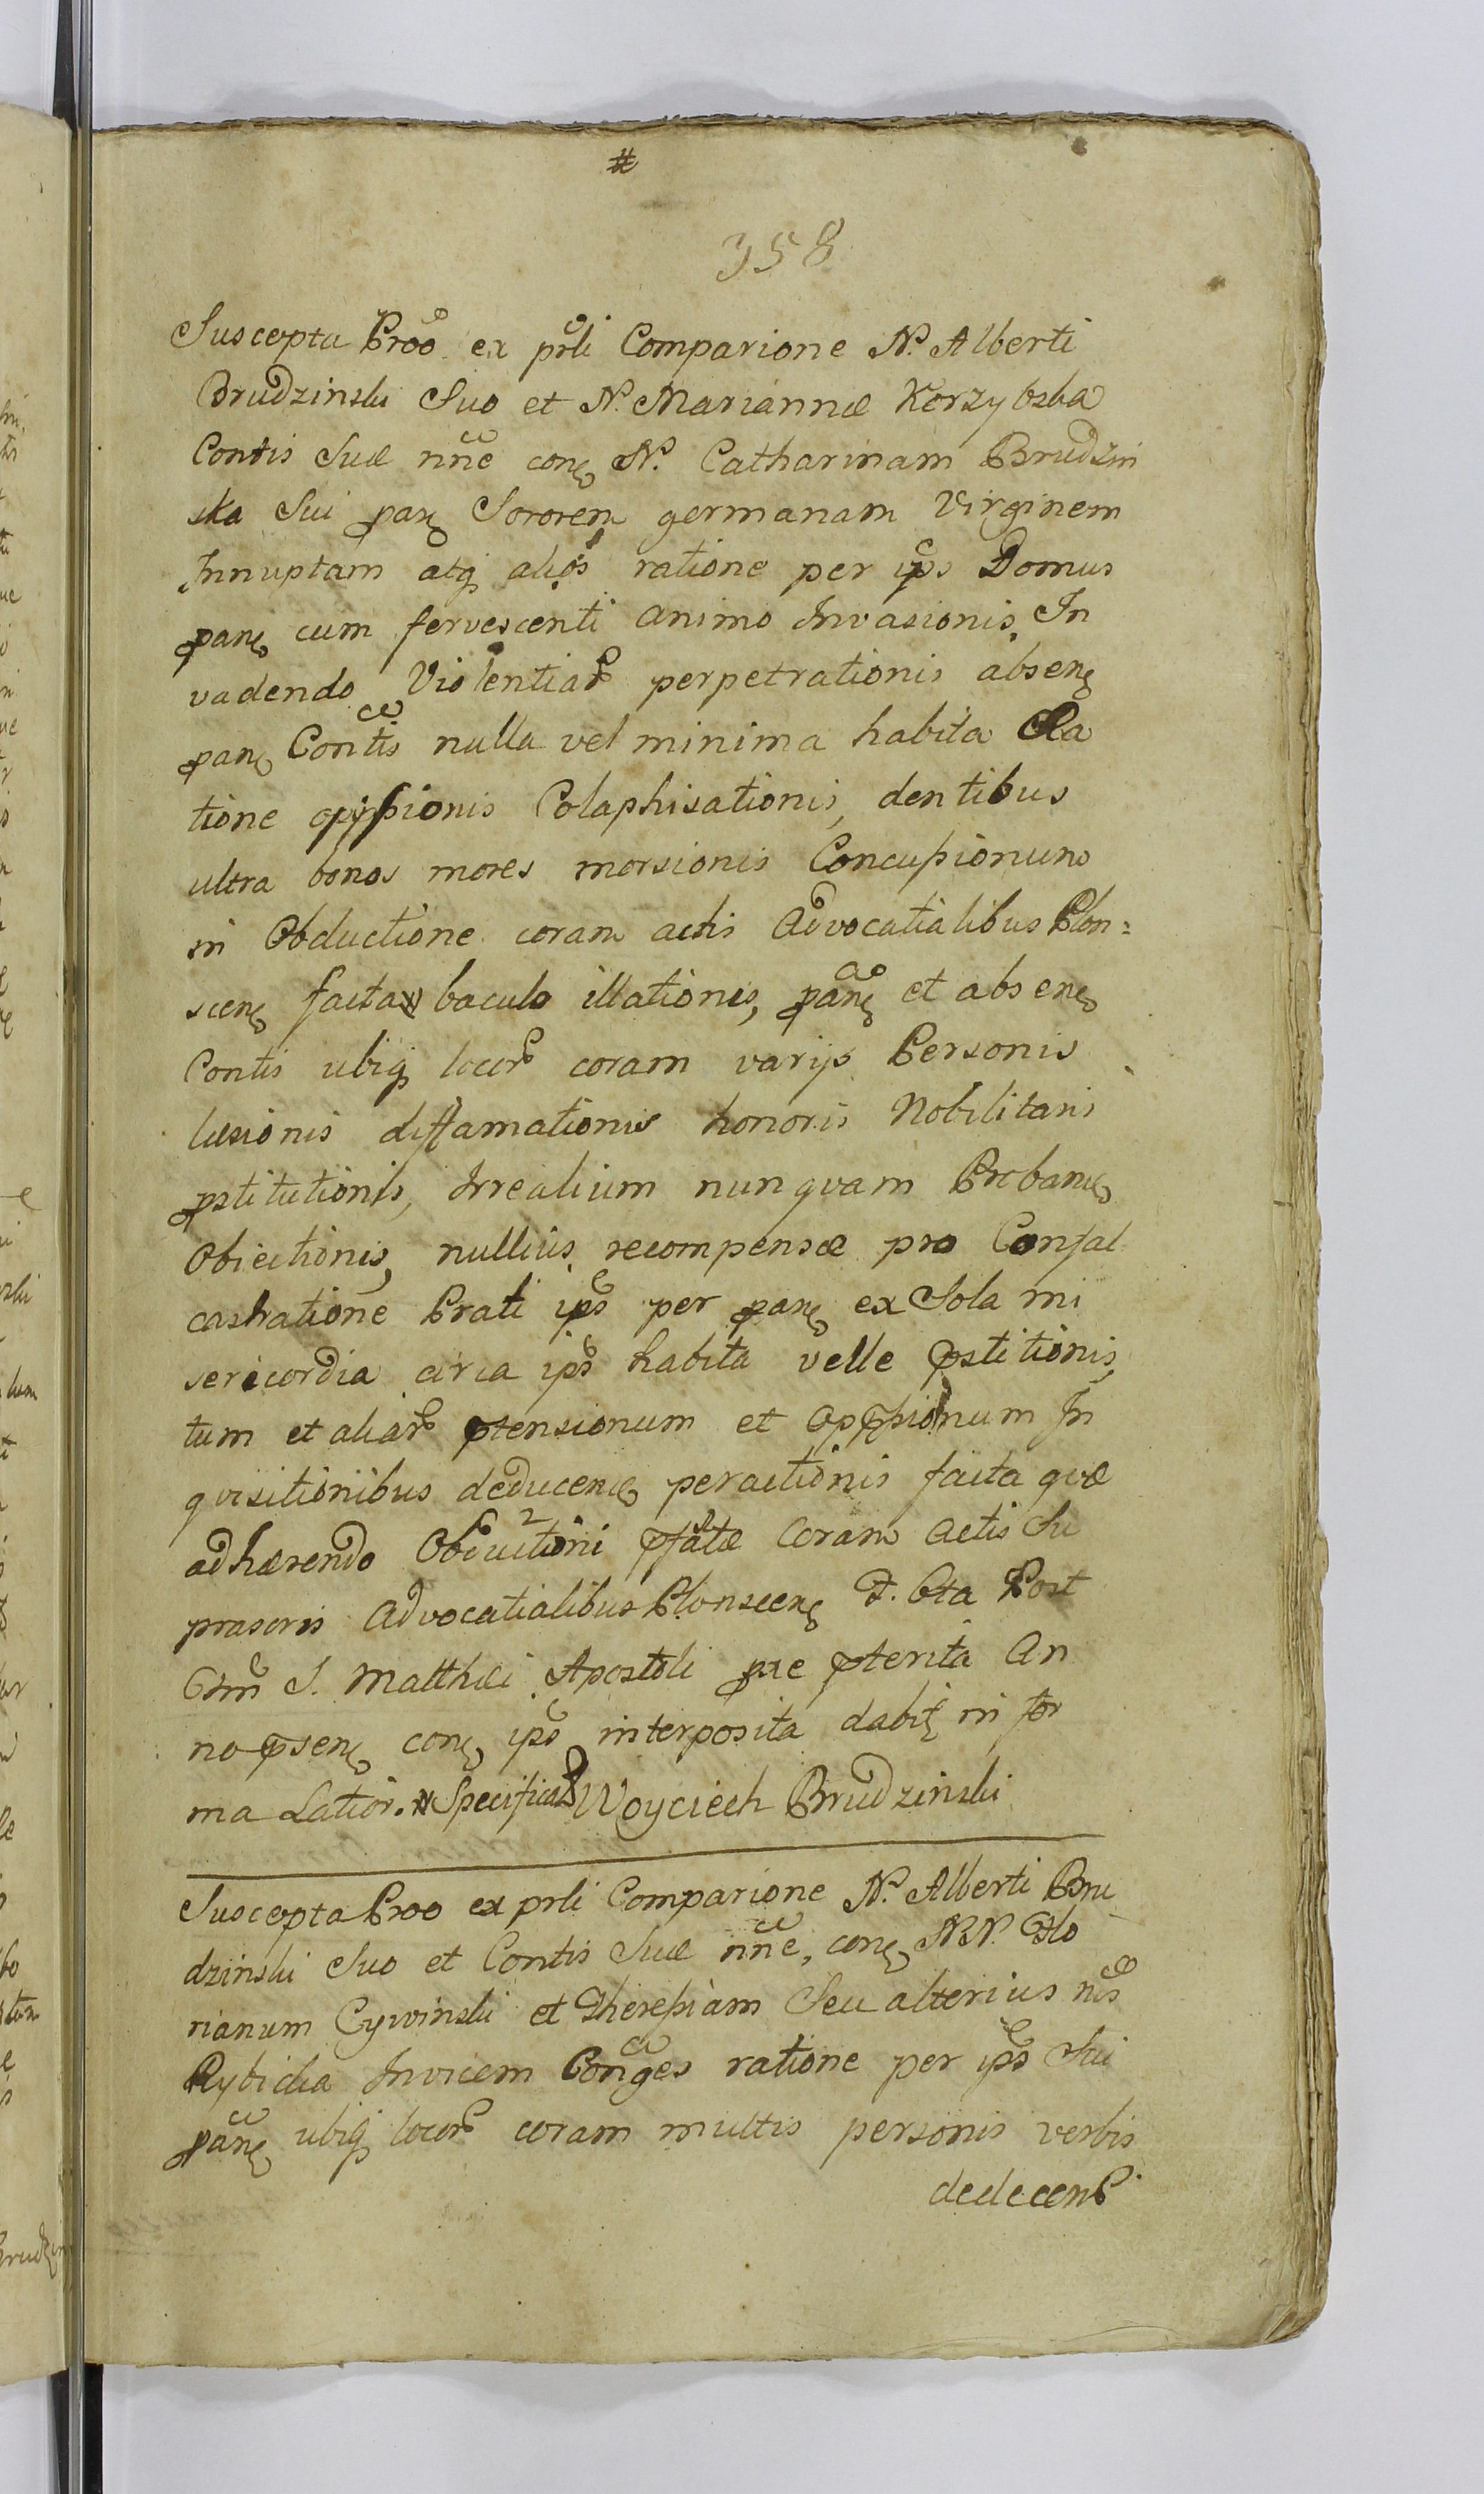 #
358
Suscepta Proō ex prli Comparione N. Alberti
Brudzinski Suo et N. Mariannæ Korzybska
Contis Suæ nñe conę N. Catharinam Brudzin
ska Sui panę Sororem germanam Virginem
Innuptam atq alios ratione per ips Domus
panę cum fervescenti animo Invasionis, In
vadendo Violentiar perpetrationis absenę
panę Contis nulla vel minima habita Ra
tione oppssionis Colaphisationis, dentibus
ultra bonos mores morsionis Concussionum
in Obductione coram actis Advocatialibus Plon=
scenę facta # baculo illationis, panę et absenę
Contis ubiq locor coram varijs Personis
læsionis diffamationis honoris Nobilitaris
pstitutionis, Irrealium nunqvam Probanę
Obiectionis, nullius recompensæ pro Confal
castratione Prati ips per panę ex Sola mi
sericordia circa ips habita velle pstitionis,
tum et aliar ptensionum et oppssionum In
qvisitionibus deducenę peractionis facta qvæ
adhærendo Obductioni pfatæ Coram Actis Su
prascris Advocatialibus Plonscenę F. 6ta Post
Ftum S. Matthæi Apostoli pxe pterita An
no psenę conę ips interposita dabit in for
ma Latior. # Specificat Woyciech Brudzinski
Suscepta Proo ex prli Comparione N. Alberti Bru
dzinski Suo et Contis Suæ nñe, conę NN. Flo
rianum Cywinski et Theressiam Seu alterius nis
Rybicka Invicem Conges ratione per ips Sui
panę ubiq locor coram multis personis verbis
dedecent